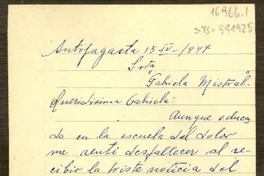 16966.1
Antofagasta 15 IV - / 947
Srta
Gabriela Mistral.
Queridísima Gabriela:
Aunque educa
da en la escuela del dolor
me sentí desfallecer al re
cibir la triste noticia del